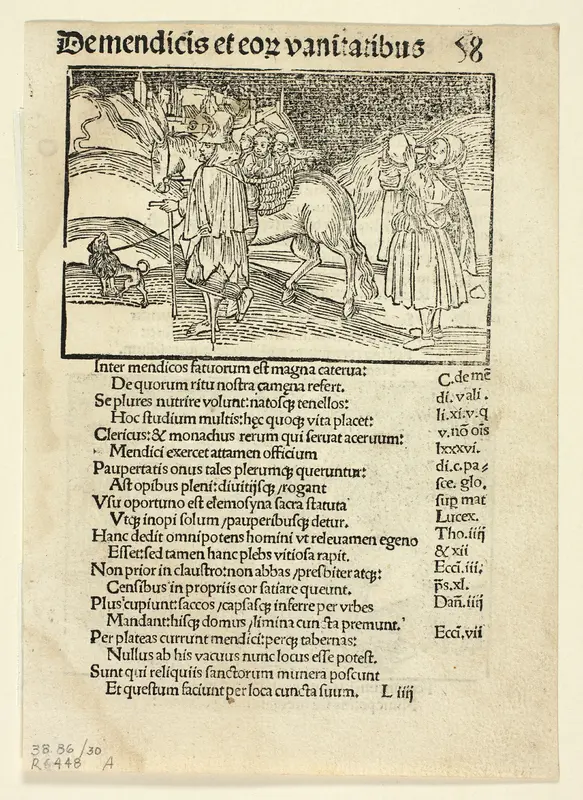 De mendicis et eoꝝ vanitatibus 58
Inter mendicos fatuorum est magna caterua:
De quorum ritu nostra camęna refert.
Se plures nutrire volunt: natosqꝫ tenellos:
Hoc studium multis: hęc quoqꝫ vita placet:
Clericus: & monachus rerum qui seruat aceruum:
Mendici exercet attamen officium
Paupertatis onus tales plerumqꝫ queruntur:
Ast opibus pleni: diuitijsqꝫ /rogant
Vsu oportuno est elemosyna sacra statuta
Vtqꝫ inopi solum /pauperibusqꝫ detur.
Hanc dedit omnipotens homini vt releuamen egeno
Esset: sed tamen hanc plebs vitiosa rapit.
Non prior in claustro: non abbas /presbiter atqꝫ:
Censibus in propriis cor satiare queunt.
Plus cupiunt: saccos /capsasqꝫ inferre per vrbes
Mandant: hisqꝫ domus /limina cuncta premunt.
Per plateas currunt mendici: perqꝫ tabernas:
Nullus ab his vacuus nunc locus esse potest.
Sunt qui reliquiis sanctorum munera poscunt
Et questum faciunt per loca cuncta suum. L iiij
C. de mē
di. vali.
li. xi. v. q
v. nō oīs
lxxxvi.
di. c. pa⸗
sce. glo.
sup mat
Lucex.
Tho. iiij
& xii
Ecci. iii.
p̄s. xl.
Dañ. iiij
Ecci. vii
38.86/30
R6448 A